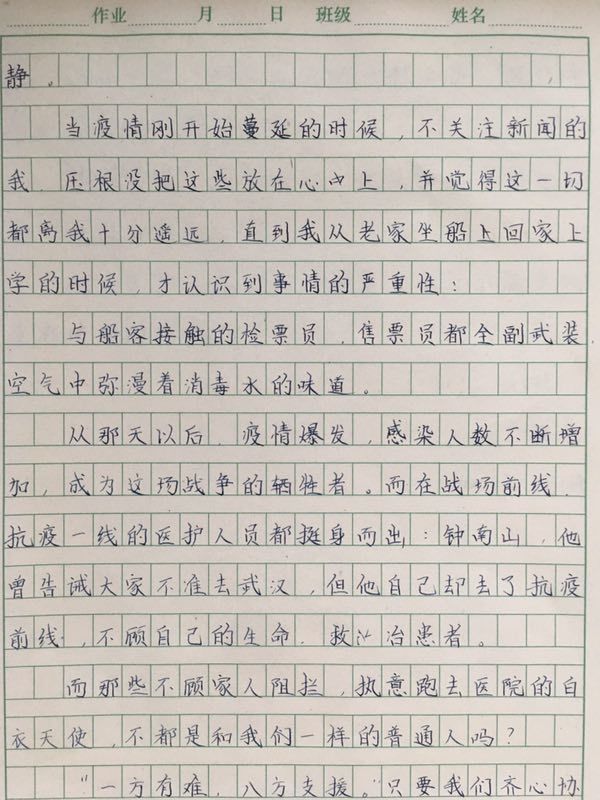 作业 月 日 班级 姓名
静。
当疫情刚开始蔓延的时候，不关注新闻的
我，压根没把这些放在心中上，并觉得这一切
都离我十分遥远，直到我从老家坐船上回家上
学的时候，才认识到事情的严重性：
与船客接触的检票员，售票员都全副武装
空气中弥漫着消毒水的味道。
从那天以后 疫情爆发，感染人数不断增
加，成为这场战争的牺牲者。而在战场前线，
抗疫一线的医护人员都挺身而出：钟南山，他
曾告诫大家不准去武汉，但他自己却去了抗疫
前线，不顾自己的生命，救治患者。
而那些不顾家人阻拦，执意跑去医院的白
衣天使，不都是和我们一样的普通人吗？
“一方有难，八方支援。”只要我们齐心协